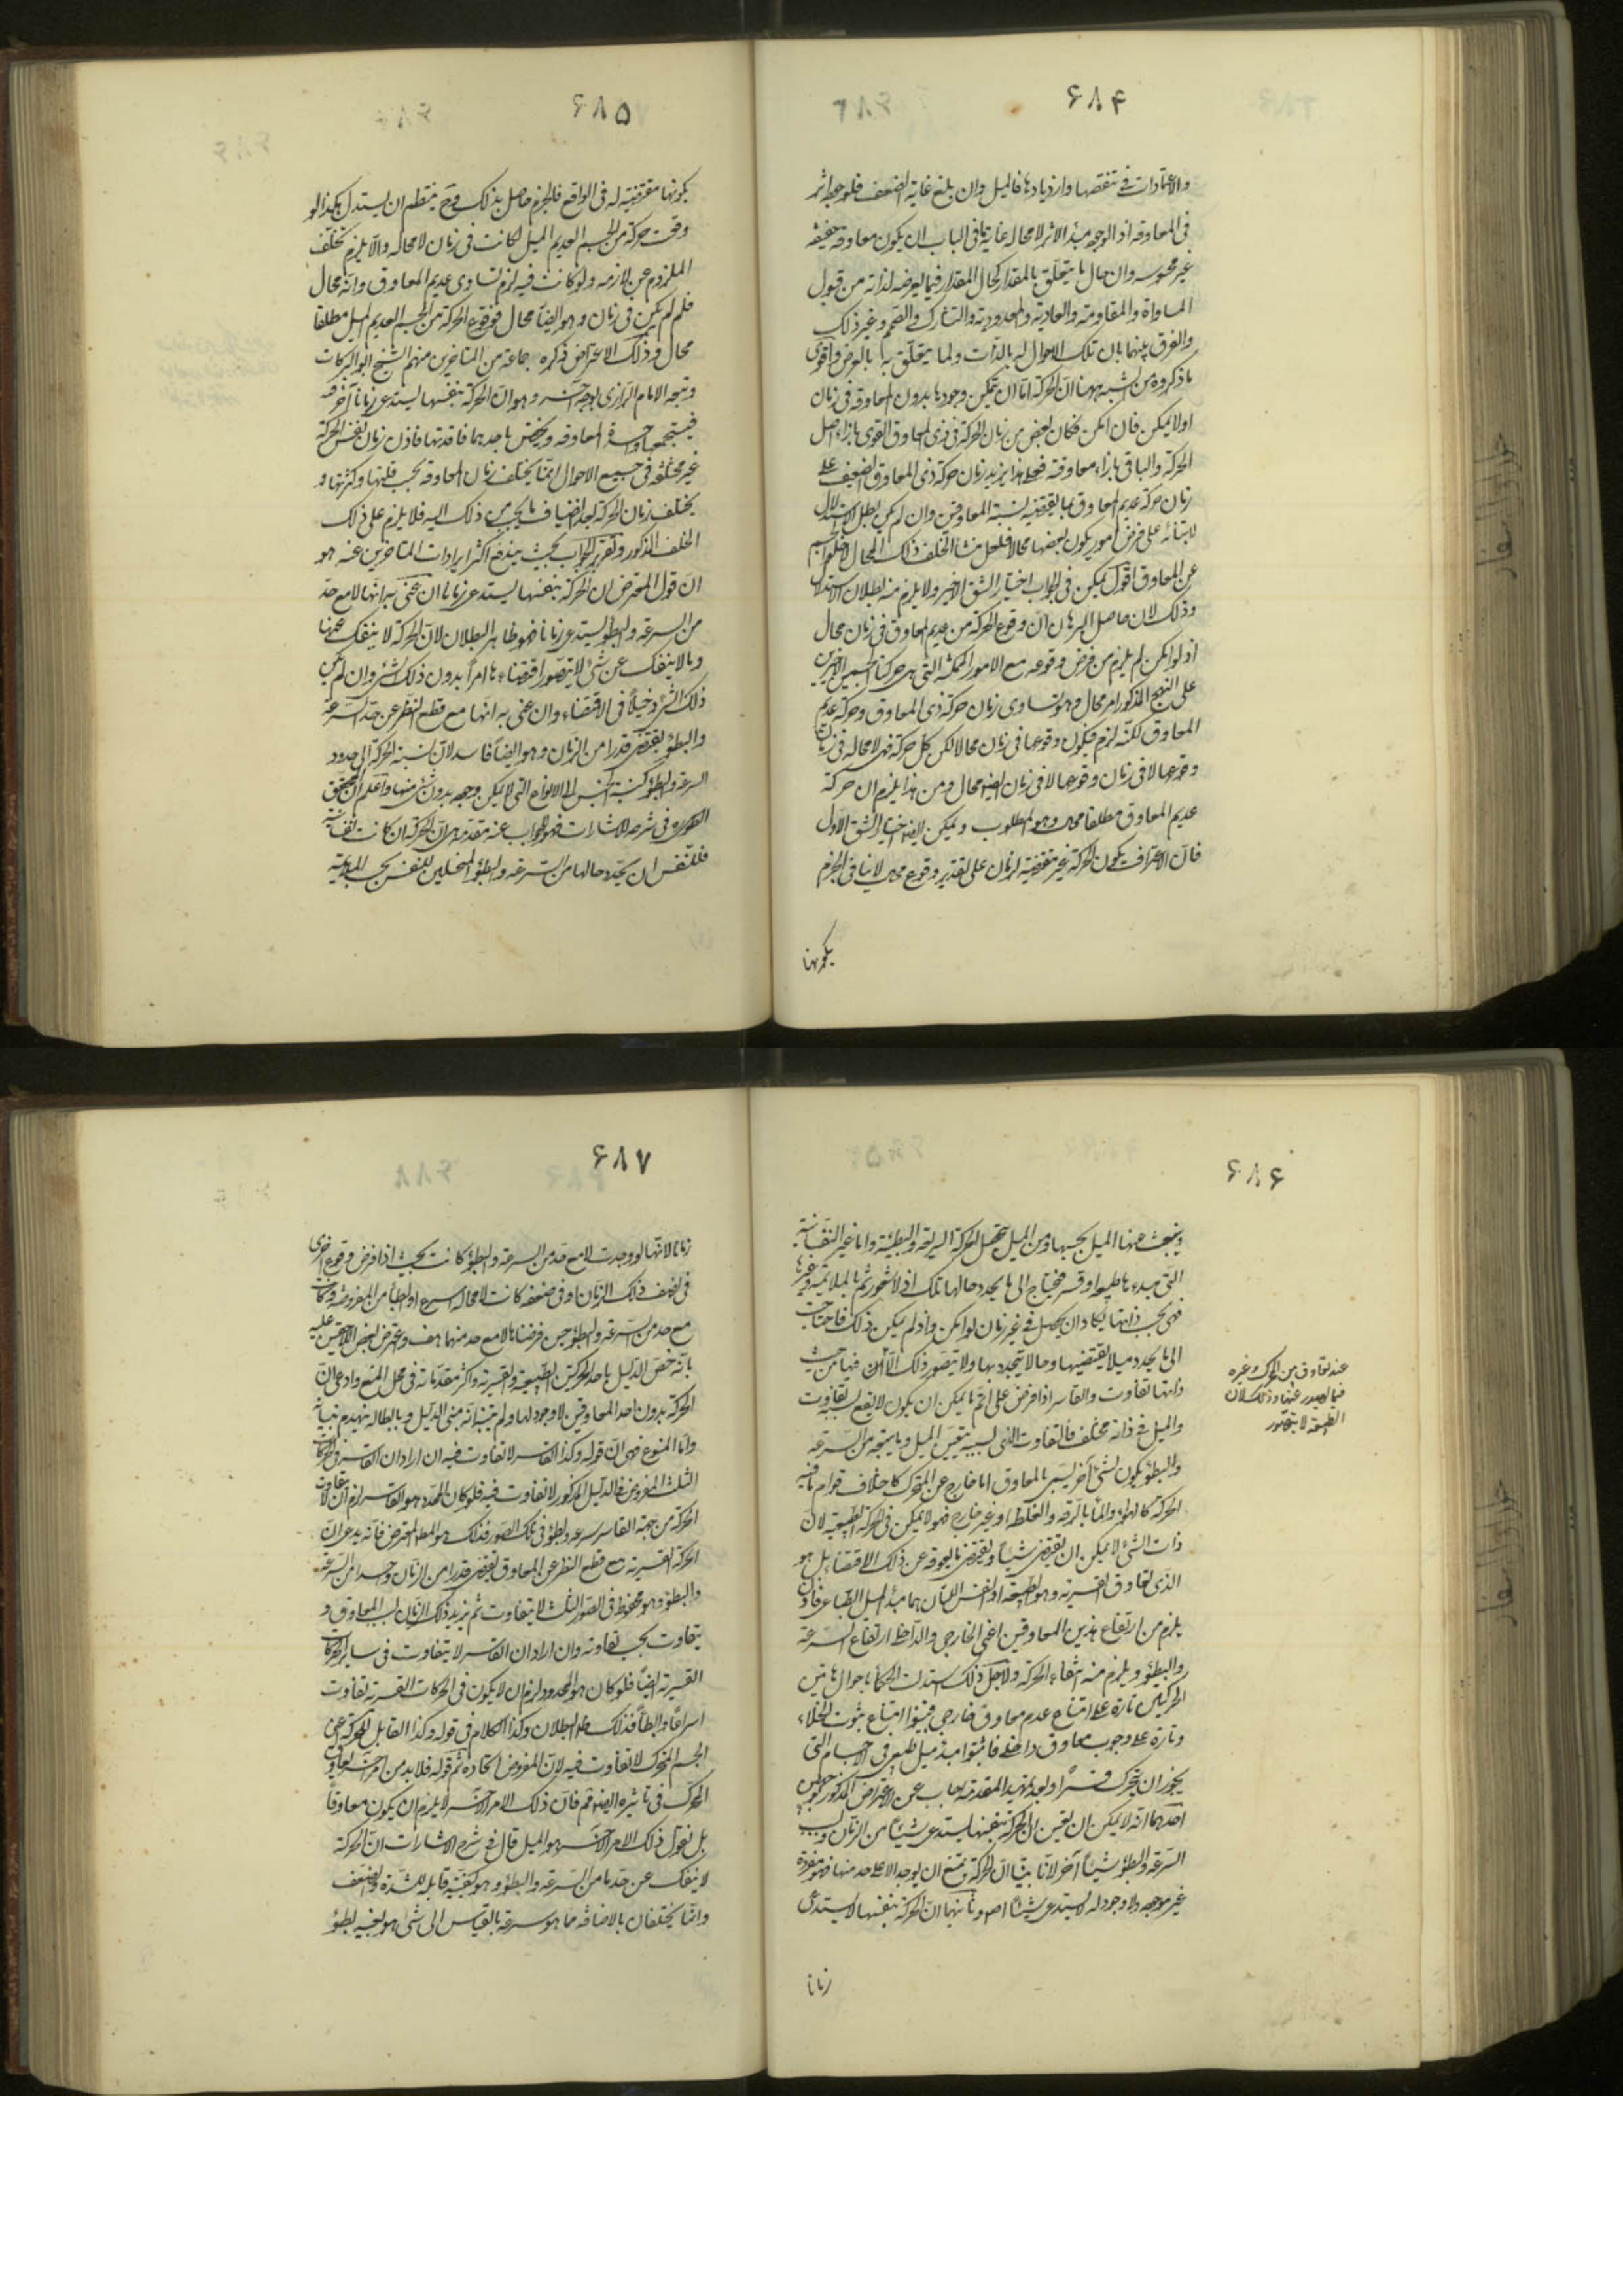 ۶۸۴
والاعتمادات فی تنقصها وازدیادها فالمیل وان بلغ غایة الضعف فلوجوده اثر
فی المعاوقه اذ الوجه مبدأ الاثر لا محاله غایة ما فی الباب ان یکون معاوقه خفیفه
غیر محسوسه وان حال ما یتعلق بالمقدار کحال المقدار فیما یعرضه لذاته من قبول
المساواة والمفاوته والعادیة والمعدودیة والتشارک والصمم وغیر ذلک
والفرق بینهما بان تلک الاحوال له بالذات ولما یتعلق به بالعرض واقوی
ما ذکروه من الشبه ههنا ان الحرکة اما ان یمکن وجودها بدون المعاوقه فی زمان
اولا یمکن فان امکن فکان بعض من زمان الحرکة فی ذی المعاوق القوی بازاء اصل
الحرکة والباقی بازاء معاوقته فعلی هذا یزید زمان حرکة ذی المعاوق الضعیف علی
زمان حرکة عدیم المعاوق بما یقتضیه نسبة المعاوقین وان لم یکن بطل الاستدلال
لابتنائه علی فرض امور یکون بعضها محالا فلعل منشأ الخلف ذلک المحال لا خلو الجسم
عن المعاوق اقول یمکن فی الجواب اختیار الشق الاخیر ولا یلزم منه بطلان الاستدلال
وذلک لان حاصل البرهان ان وقوع الحرکة من عدیم المعاوق فی زمان محال
اذ لو امکن لم یلزم من فرض وقوعه مع الامور الممکنة التی هی حرکتا الجسمین الاخرین
علی النهج المذکور امر محال وهو تساوی زمان حرکة ذی المعاوق وحرکة عدیم
المعاوق لکنه لزم فیکون وقوعها فی زمان محالا لکن کل حرکة فهی لا محاله فی زمان
وقوعها لا فی زمان وقوعها لا فی زمان ایضا محال ومن هذا یلزم ان حرکة
عدیم المعاوق مطلقا محال وهو المطلوب ویمکن ایضا اختیار الشق الاول
فان الاعتراف بکون الحرکة غیر مقتضیة لزمان علی تقدیر وقوع محال لا ینافی الجزم
بکونها
۶۸۵
بکونها مقتضیة له فی الواقع فالجزم حاصل بذلک وح ینتظم ان یستدل هکذا لو
وقعت حرکة من الجسم العدیم المیل لکانت فی زمان لا محاله والا یلزم تخلف
الملزوم عن لازمه ولو کانت فیه لزم تساوی عدیم المعاوق وانه محال
فلم لم یکن فی زمان وهو ایضا محال فوقوع الحرکة من الجسم العدیم المیل مطلقا
محال وذلک الاعتراض ذکره جماعة من المتاخرین منهم الشیخ ابو البرکات
وتبعه الامام الرازی بوجه آخر وهو ان الحرکة بنفسها یستدعی زمانا آخر فیه
فیستجمعها واجدة المعاوقه ویختص باحدهما فاقدتها فاذن زمان نفس الحرکة
غیر مختلفه فی جمیع الاحوال انما یختلف زمان المعاوقه بحسب قلتها وکثرتها و
یختلف زمان الحرکة بعد انضیاف ما یجب من ذلک الیه فلا یلزم علی ذلک
الخلف المذکور وتقریر الجواب بحیث یندفع اکثر ایرادات المتاخرین عنه هو
ان قول المعترض ان الحرکة بنفسها یستدعی زمانا ان عنی به انها لا مع حد
من السرعه والبطؤ یستدعی زمانا فهو ظاهر البطلان لان الحرکة لا ینفک عنهما
وما لا ینفک عن شئ لا یتصور اقتضاءها امرا بدون ذلک الشئ وان لم یکن
ذلک الشئ دخیلا فی الاقتضاء وان عنی به انها مع قطع النظر عن حد السرعة
والبطؤ یقتضی قدرا من الزمان وهو ایضا فاسد لان نسبة الحرکة الی حدود
السرعه والبطؤ کنسبة الجنس الی الانواع التی لا یمکن وجوده بدون شئ منها واعلم ان المحقق
الطوسی فی شرحه للاشارات مهد للجواب عنه مقدمه هی ان الحرکة ان کانت نفسانیه
فللنفس ان یحدد حالها من السرعه والبطؤ المتخیلین للنفس بحسب الملایمة
۶۸۶
وینبعث عنها المیل بحسبها ومن المیل تحصل الحرکة السریعة والبطیئة واما غیر النفسانیة
التی مبدءها طبیعة او قسر فیحتاج الی ما یحدد حالها تلک اذ لا شعور ثم بالملایمة وغیرها
فهی بحسب ذاتها یکاد ان یحصل فی غیر زمان لو امکن واذ لم یکن ذلک فاحتاجت
الی ما یحدد میلا یقتضیها وحالا تتحدد بها ولا یتصور ذلک الا
ذاتها تفاوت والقاسر اذا فرض علی اتم ما یمکن ان یکون لا یقع بسببه تفاوت
والمیل فی ذاته مختلف فالتفاوت الذی بسببه یتعین المیل وما یتبعه من السرعه
والبطؤ یکون لشئ آخر یسمی بالمعاوق اما خارج عن المتحرک کاختلاف قوام ما فیه
الحرکة کالهواء والماء بالرقه والغلظ او غیر خارج فهو لا یمکن فی الحرکة الطبیعیة لان
ذات الشئ لا یمکن ان یقتضی شیئا ویقتضی ما یعوقه عن ذلک الاقتضاء بل هو
الذی یعاوق القسریه وهو الطبیعة او النفس اللتان هما مبدأ المیل الطباعی فاذن
یلزم من ارتفاع هذین المعاوقین اعنی الخارجی والداخلی ارتفاع السرعة
والبطؤ ویلزم منه انتفاء الحرکة ولاجل ذلک استدلت الحکماء باحوال هاتین
الحرکتین تارة علی امتناع عدم معاوق خارجی فبینوا امتناع ثبوت الخلاء
وتارة علی وجوب معاوق داخلی فاثبتوا مبدأ میل طبیعی فی الاجسام التی
یجوز ان یتحرک قسرا وبعد تمهید المقدمة اجاب عن الاعتراض المذکور بوجهین
احدهما انه لا یمکن ان یقین ان الحرکة بنفسها یستدعی شیئا من الزمان وبسبب
السرعه والبطؤ شیئا آخر لانا بینا ان الحرکة یمتنع ان یوجد الا علی حد منها فهو مفردة
غیر موجوده ولا وجود له لا یستدعی شیئا اصلا وثانیهما ان الحرکة بنفسها لا یستدعی
زمانا
عند تفاوق بین المحرک وغیره
فیما یصدر عنها وذلک لان
الطبیعة لا یتصور
۶۸۷
زمانا لانها لو وجدت لا مع حد من السرعة والبطؤ کانت بحیث اذا فرض وقوع اخری
فی نصف ذلک الزمان او فی ضعفه کانت لا محاله اسرع او ابطأ من المفروضة وکانت
مع حد من السرعة والبطؤ حین فرضناها لا مع حد منهما هف واعترض بعض اللاحقین علیه
بانه خص الدلیل باحد الحرکتین الطبیعیة والقسریه واکثر مقدماته فی محل المنع وادعی ان
الحرکة بدون احد المعاوقین لا وجود لها ولم یتبین انه مبنی الدلیل وبابطاله ینهدم بنیانه
واما المنوع فهی ان قوله وکذا القاسر لا تفاوت فیه ان اراد ان القاسر فی الحرکات
الثلث المفروضة فی الدلیل المذکور لا تفاوت فیه فلو کان المحدد هو القاسر لزم ان لا یتفاوت
الحرکة من جهة القاسر سرعه وبطؤ فی تلک الصور فذلک هو المطلوب للمعترض فانه یدعی ان
الحرکة القسریة مع قطع النظر عن المعاوق یقتضی قدرا من الزمان وحدا من السرعة
والبطؤ وهو محفوظ فی الصور الثلث لا یتفاوت ثم یزید ذلک الزمان بسبب المعاوق و
یتفاوت بحسب تفاوته وان اراد ان القاسر لا یتفاوت فی سایر الحرکات
القسریة ایضا فلو کان هو المحدد لزم ان لا یکون فی الحرکات القسریة تفاوت
اسراعا وابطأ فذلک ظاهر البطلان وکذا الکلام فی قوله وکذا القابل للحرکة اعنی
الجسم المتحرک لا تفاوت فیه لان المفروض اتحاده ثم قوله فلا بد من امر آخر یعاوق
المحرک فی تاثیره ایضا مم فان ذلک الامر الآخر لا یلزم ان یکون معاوقا
بل نقول ذلک الامر الآخر هو المیل قال فی شرح الاشارات ان الحرکة
لا ینفک عن حد ما من السرعة والبطؤ وهو کیفیة قابلة للشدة والضعف
وانما یختلفان بالاضافه فما هو سرعة بالقیاس الی شئ هو بعینه بطؤ